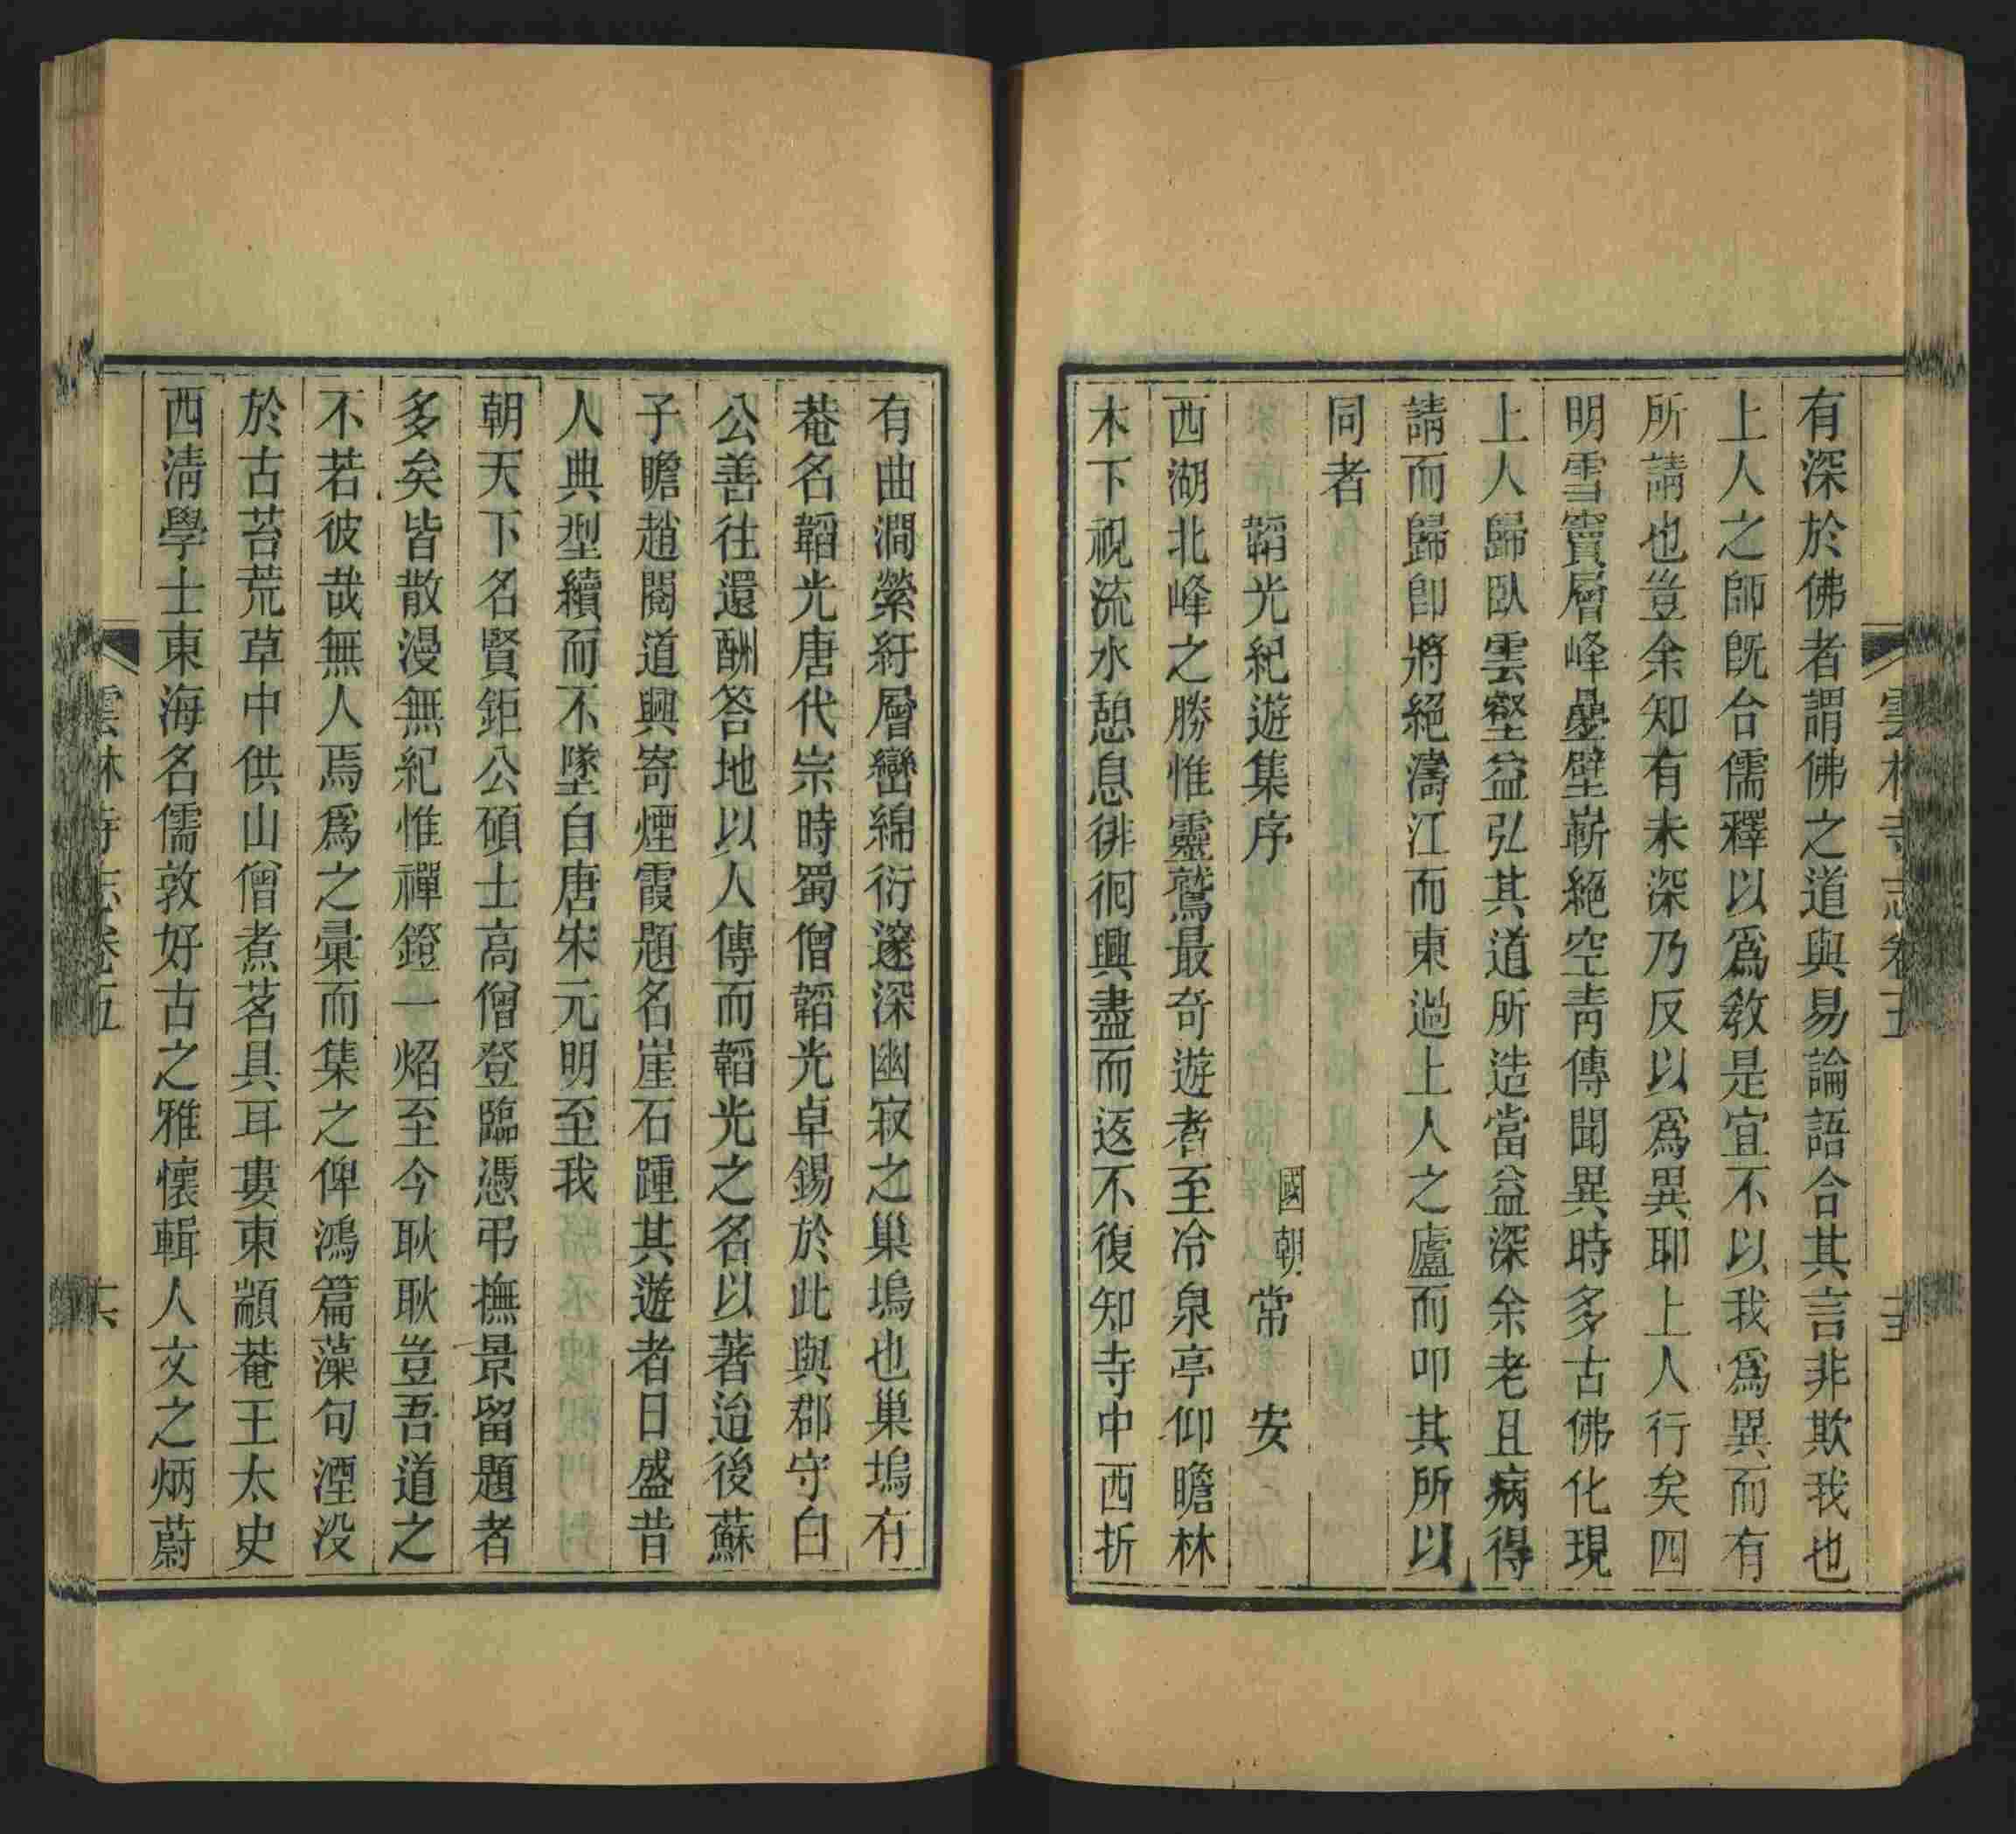 有深於佛者謂佛之道與易論語合其言非欺我也
上人之師既台儒釋以爲教是宜不以我爲異而有
所請也豈余知有未深乃反以爲異耶上人行矣四
明雪竇層峰壘壁嶄絕空青傳聞異時多古佛化現
上人歸臥雲壑益弘其道所造當益深余老且病得
請而歸卽將絕濤江而東過上人之廬而叩其所以
同者
韜光紀遊集序 國朝 常 安
西湖北峰之勝惟靈鷲最奇遊者至冷泉亭仰瞻林
木下視流水憩息徘徊興盡而返不復知寺中西折
有曲澗縈紆層巒綿衍邃深幽寂之巢塢也巢塢有
菴名韜光唐代宗時蜀僧韜光卓錫於此與郡守白
公善往還酬答地以人傳而韜光之名以著迨後蘇
子瞻趙閱道興寄煙霞題名崖石踵其遊者日盛昔
人典型續而不墜自唐宋元明至我
朝天下名賢鉅公碩士高僧登臨憑弔撫景留題者
多矣皆散漫無紀惟禪鐙一熖至今耿耿豈吾道之
不若彼哉無人焉爲之彙而集之俾鴻篇藻句湮没
於古苔荒草中供山僧煮茗具耳婁東顓菴王太史
西淸學士東海名儒敦好古之雅懷輯人文之炳蔚
雲林寺志卷五